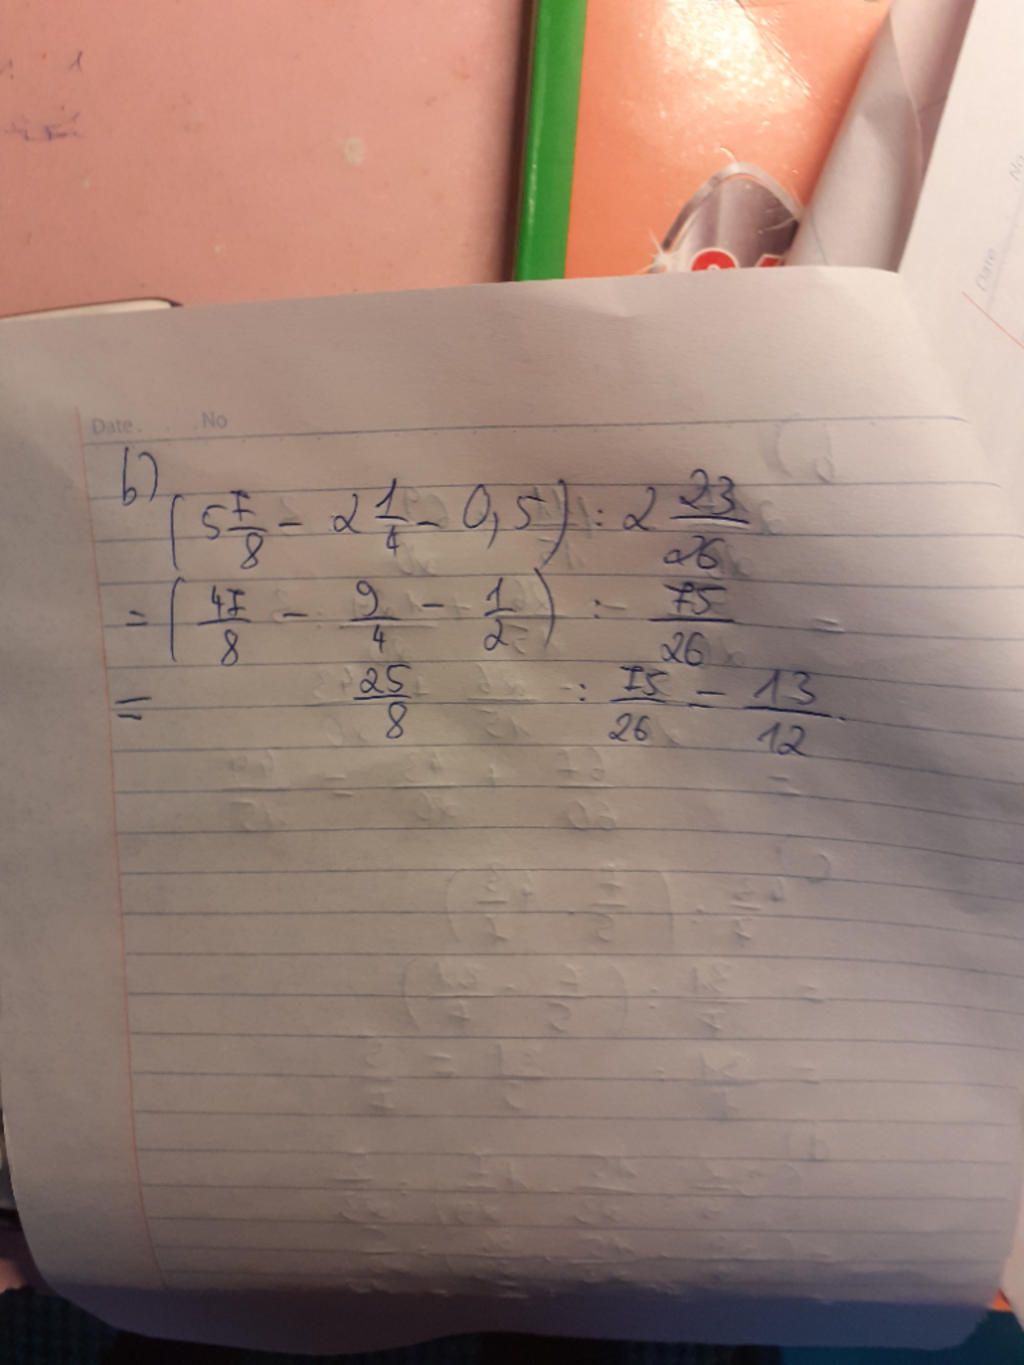 Date. . .No
b)
(5 7/8 - 2 1/4 - 0,5) : 2 23/26
= (47/8 - 9/4 - 1/2) : 75/26
= 25/8 : 75/26 = 13/12.
Date No